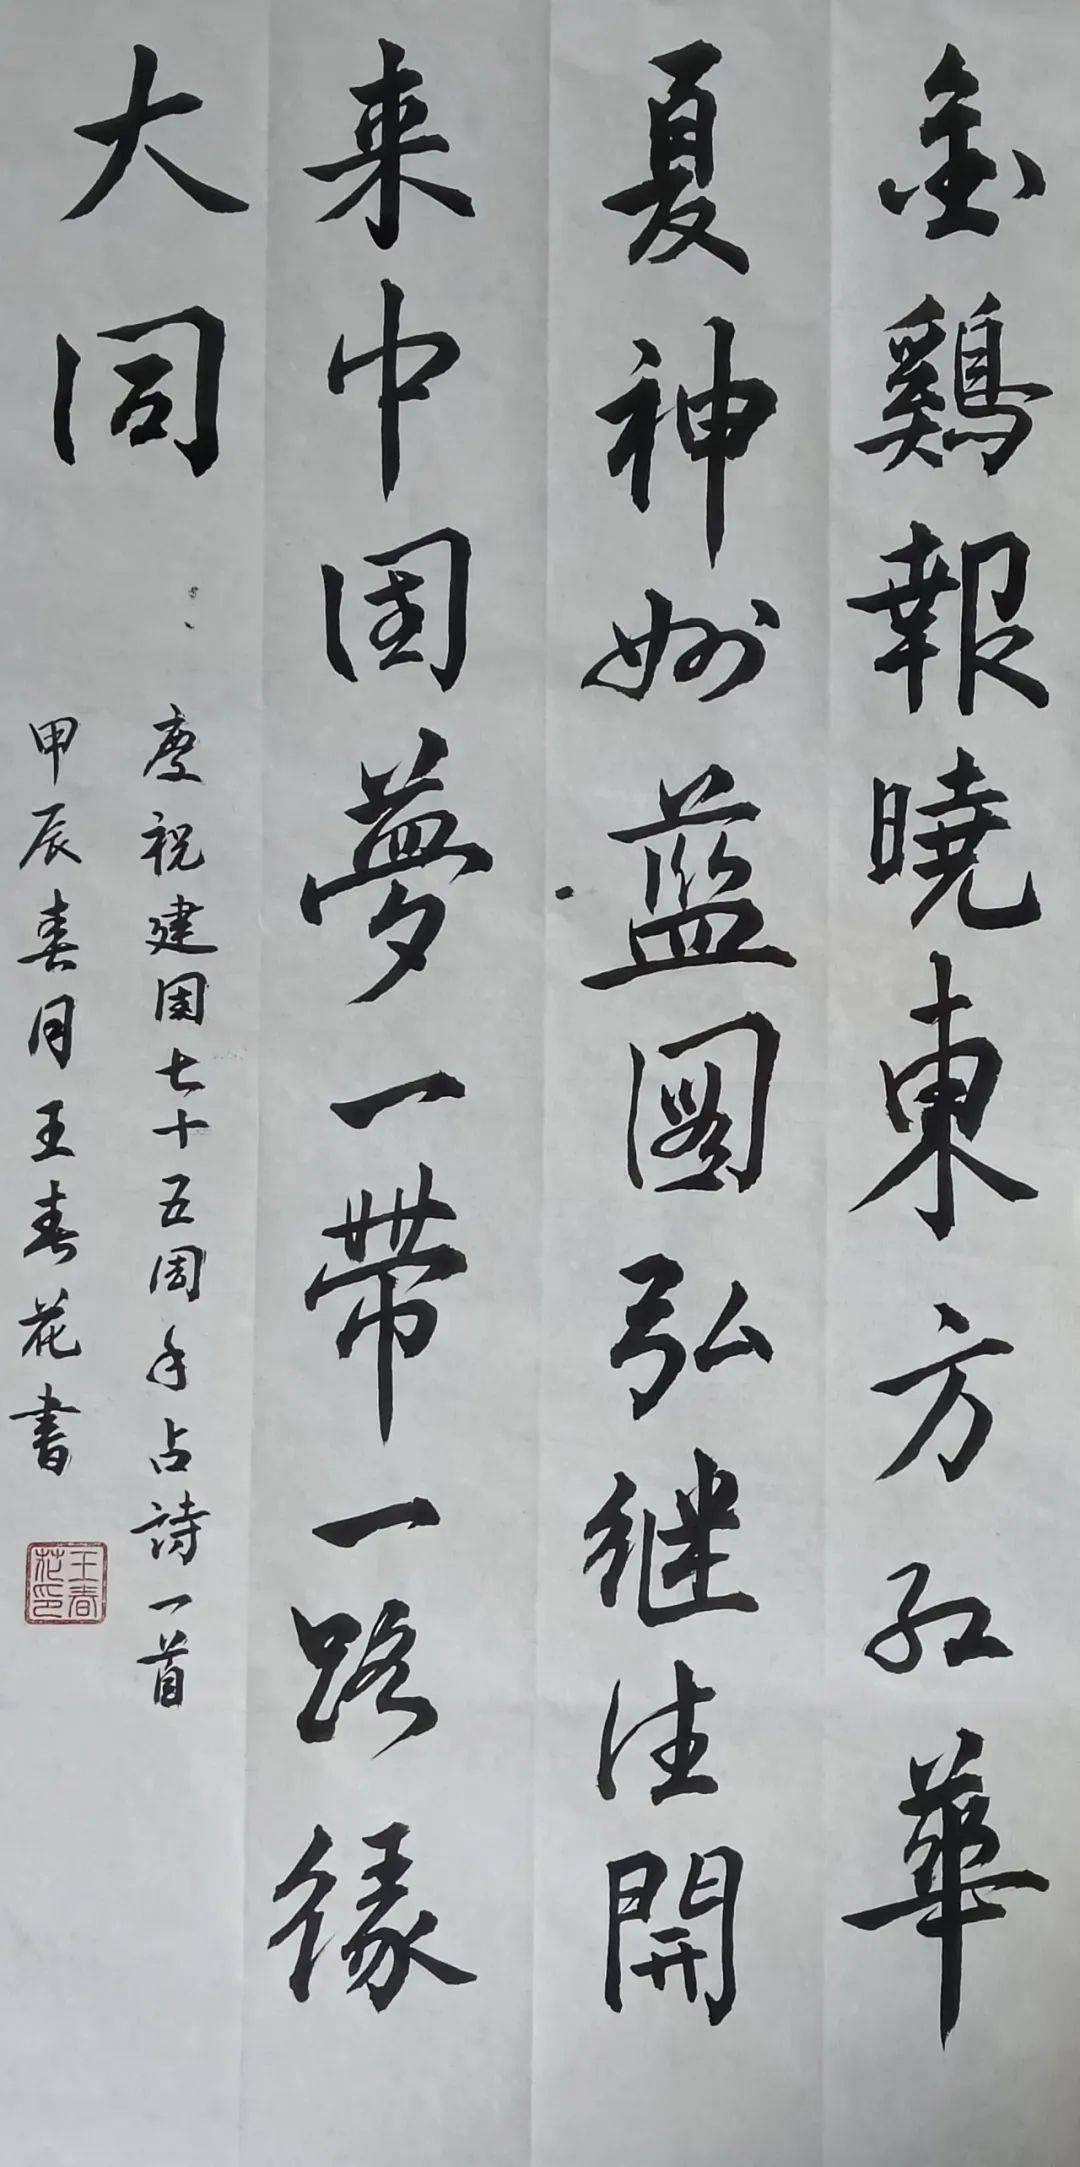 金鷄報曉東方紅華
夏神州藍圖弘继往開
来中国夢一帶一路緣
大同
慶祝建国七十五周年占詩一首
甲辰春月王春花書
王春花印